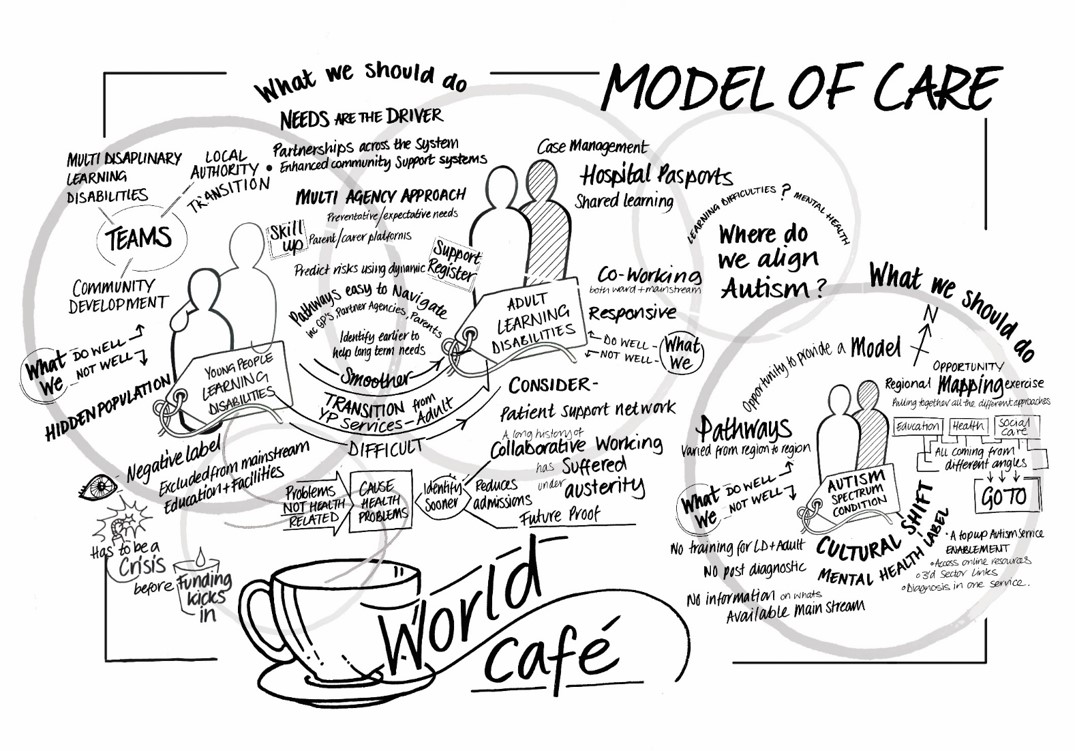 MODEL OF CARE
What we should do
NEEDS ARE THE DRIVER
• Partnerships across the System
• Enhanced community Support systems
MULTI AGENCY APPROACH
Preventative/expectative needs
Skill up
Parent/carer platforms
Predict risks using dynamic
Support
Register
Pathways easy to Navigate
inc GP'S, Partner Agencies, Parents
Identify earlier to
help long term needs
Smoother
TRANSITION from
YP Services - Adult
DIFFICULT
MULTI DISAPLINARY
LEARNING
DISABILITIES
LOCAL
AUTHORITY
TRANSITION
TEAMS
COMMUNITY
DEVELOPMENT
What
We
DO WELL
NOT WELL
HIDDEN POPULATION
YOUNG PEOPLE
LEARNING
DISABILITIES
Negative label
Excluded from mainstream
Education + Facillities
Has to be a
Crisis
before
Funding
kicks
in
Problems
NOT HEALTH
RELATED
CAUSE
HEALTH
PROBLEMS
Identify
Sooner
Reduces
admissions
Case Management
Hospital Pasports
Shared learning
Co-Working
both ward + mainstream
Responsive
ADULT
LEARNING
DISABILITIES
DO WELL
NOT WELL
What
We
CONSIDER-
Patient support network
A long history of
Collaborative Working
has Suffered
under austerity
Future Proof
LEARNING DIFFICULTIES ? MENTAL HEALTH
Where do
we align
Autism?
What we should do
N
Opportunity to provide a Model
OPPORTUNITY
Regional Mapping exercise
Pulling together all the different approaches
Education
Health
Social
care
All coming from
different angles
GO TO
Pathways
Varied from region to region
What
We
DO WELL
NOT WELL
AUTISM
SPECTRUM
CONDITION
CULTURAL SHIFT
MENTAL HEALTH LABEL
No training for LD + Adult
No post diagnostic
No information on whats
Available Main stream
• A top up Autism Service
ENABLEMENT
• Access online resources
• 3'd Sector Links
• Diagnosis in one service..
World
Café